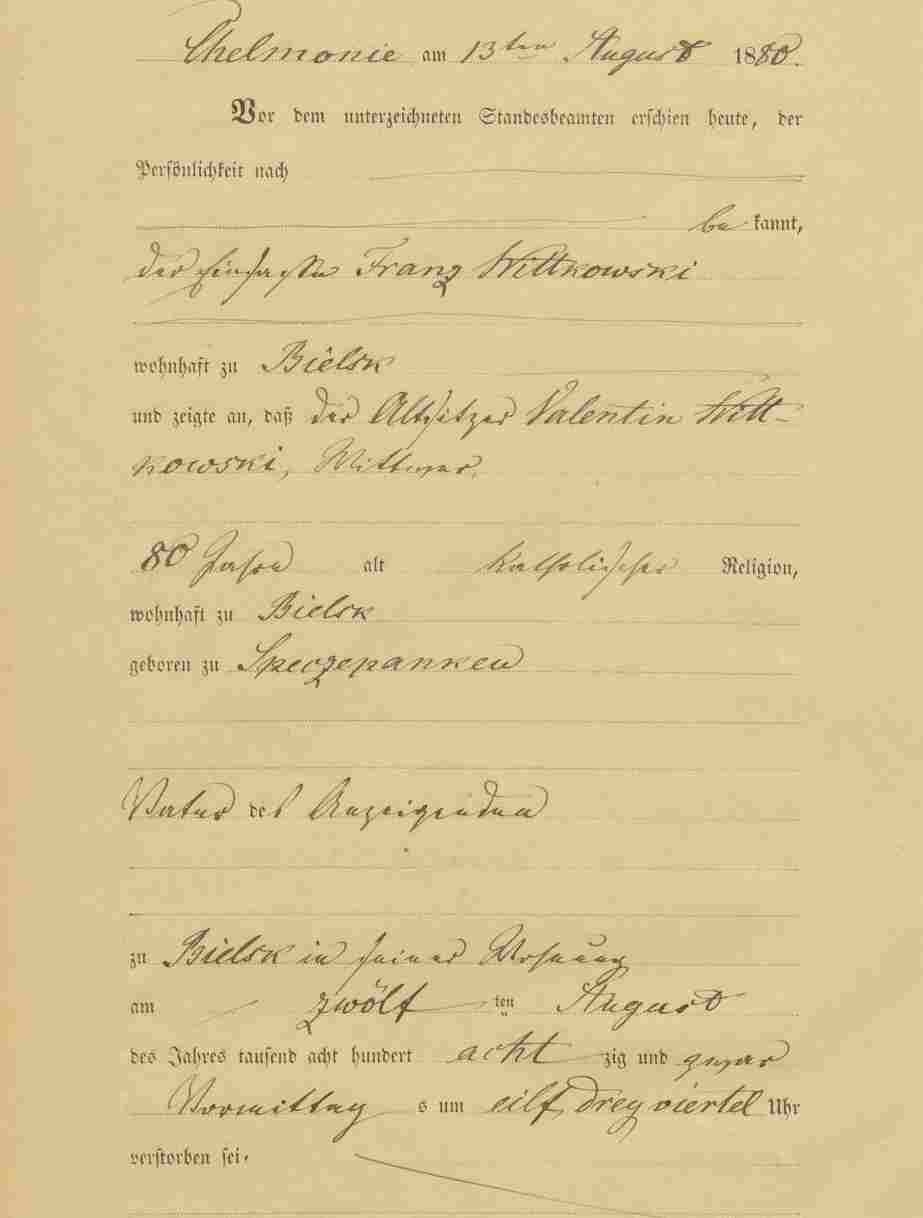 Chelmonie am 13ten August 1880.
Vor dem unterzeichneten Standesbeamten erschien heute, der
Persönlichkeit nach
bekannt,
der Einsasse Franz Wittkowski
wohnhaft zu Bielsk
und zeigte an, daß der Altsitzer Valentin Witt-
kowski, Wittwer,
80 Jahre alt katholischer Religion,
wohnhaft zu Bielsk
geboren zu Speczepanken
Vater des Anzeigenden
zu Bielsk in seiner Wohnung
am zwölften August
des Jahres tausend acht hundert achtzig und zwar
Vormittags um eilf drey viertel Uhr
verstorben sei.